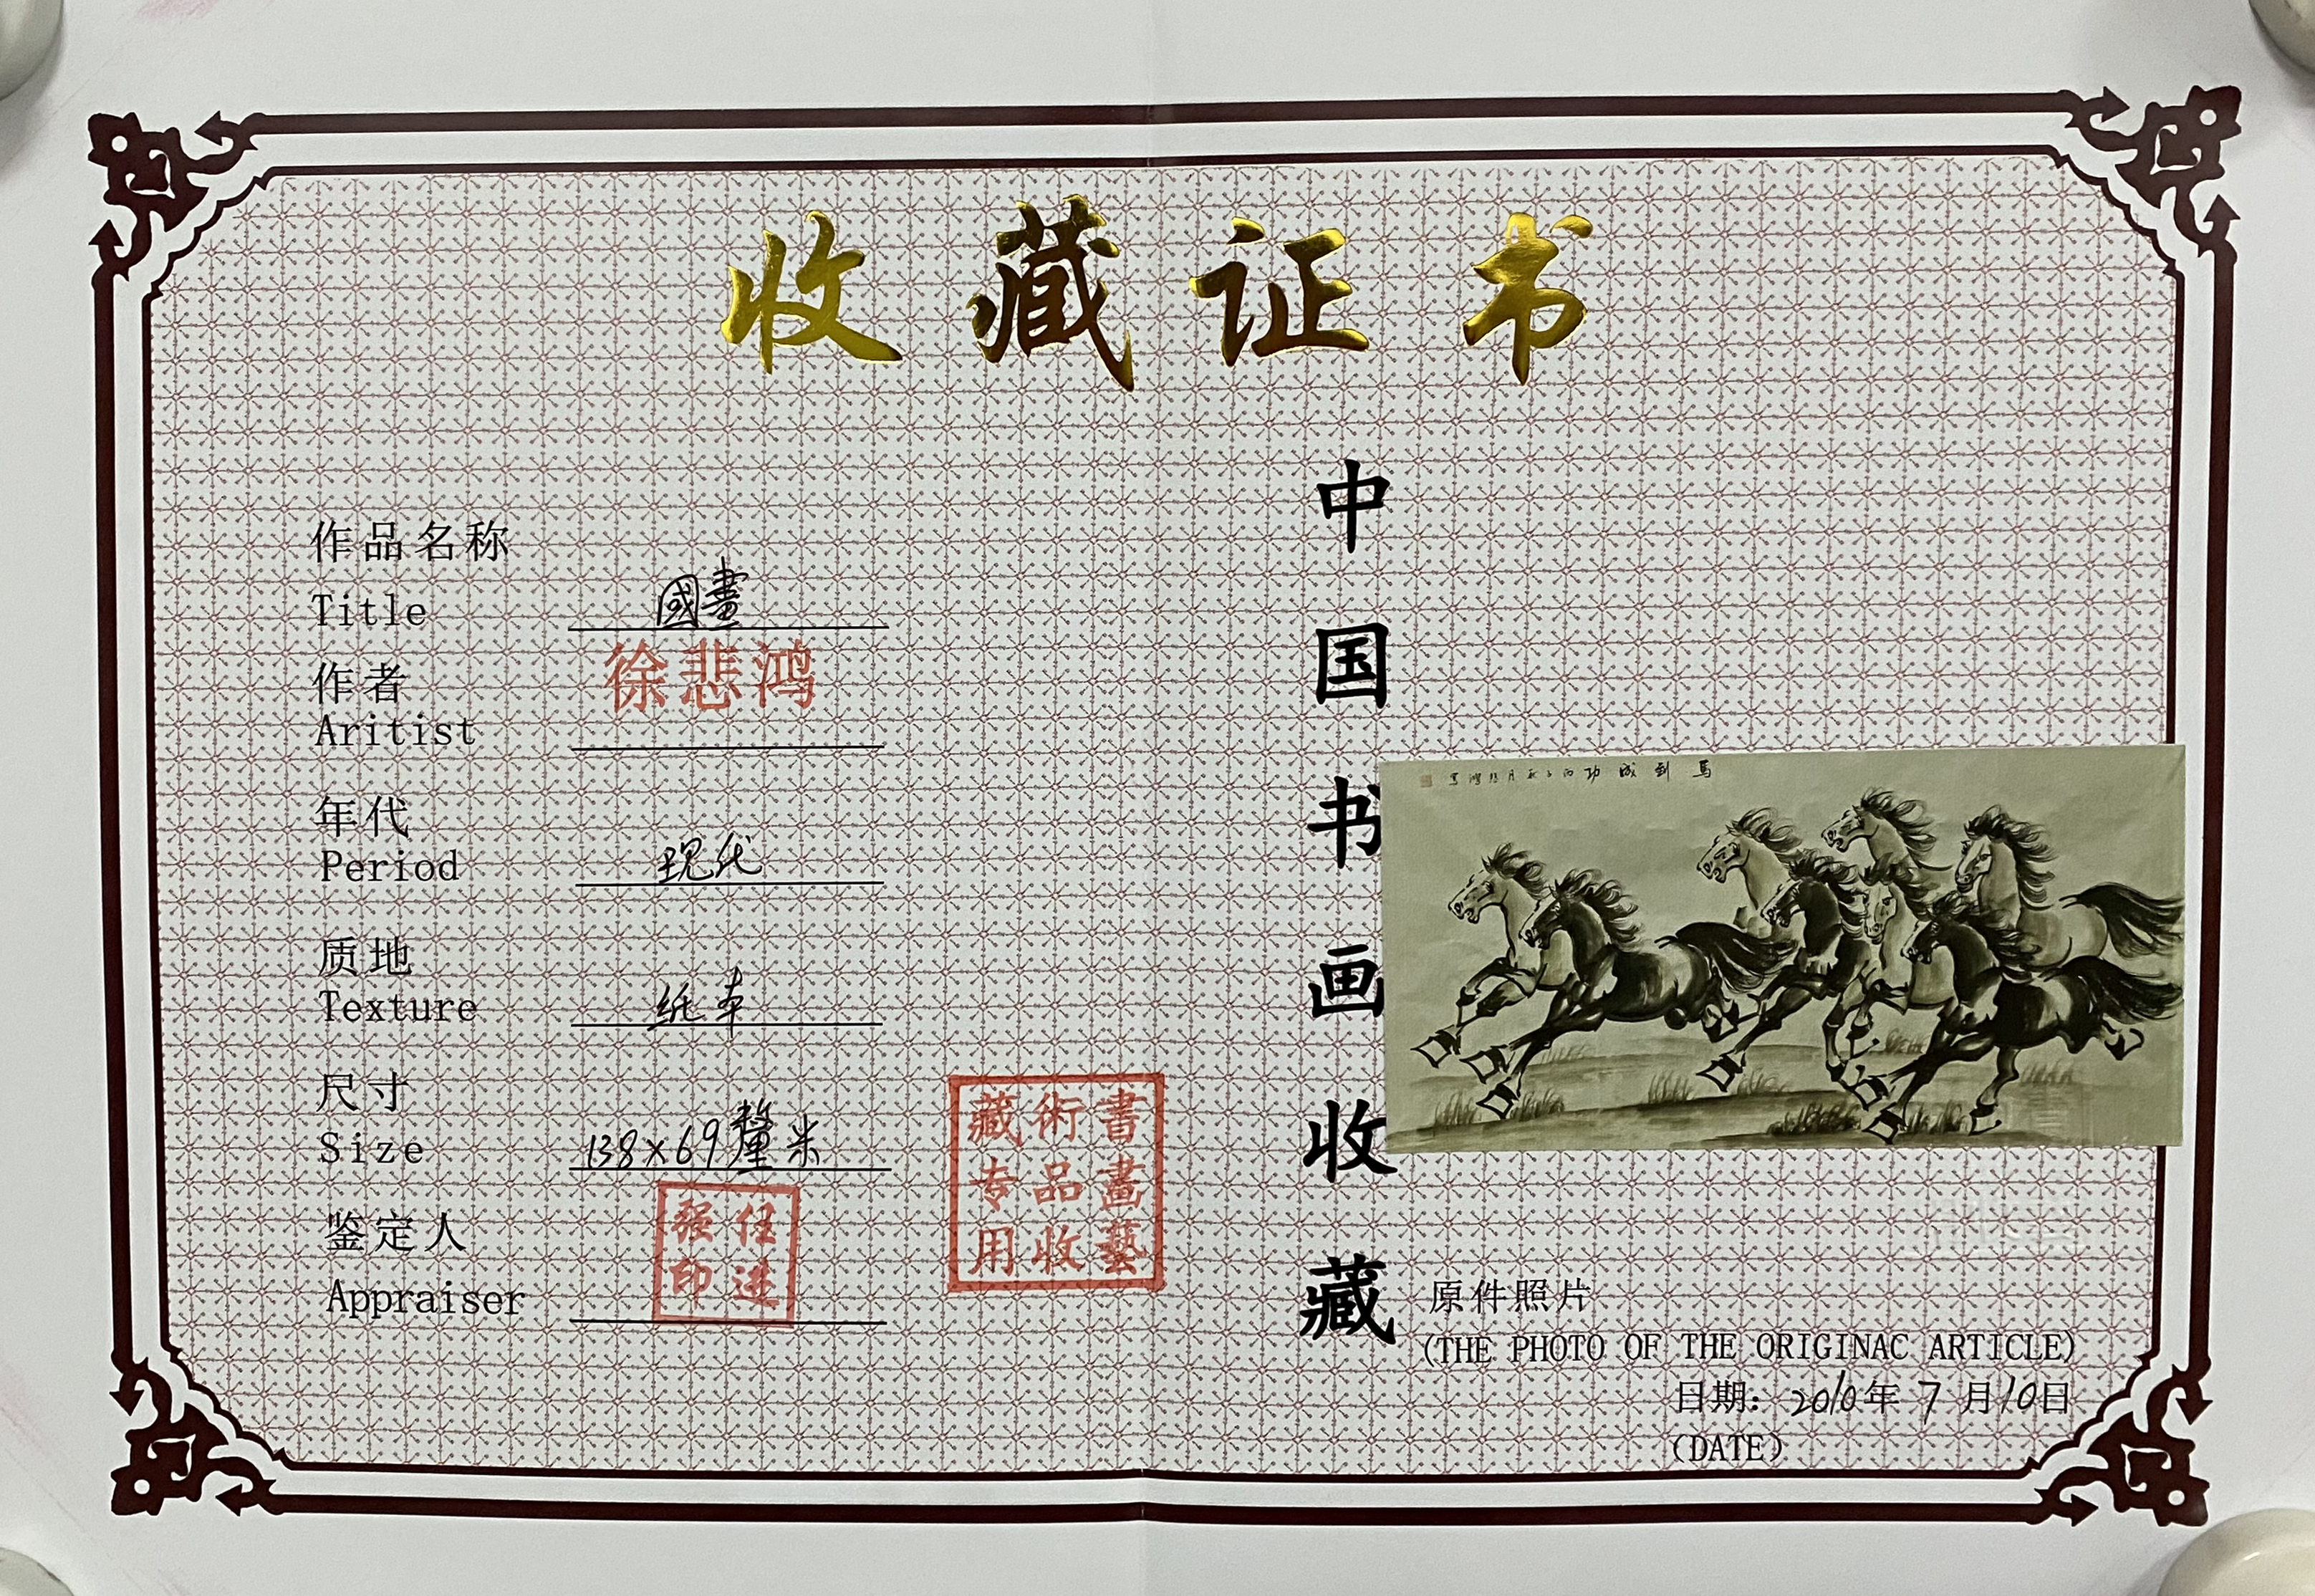 收藏证书
作品名称
Title 國畫
作者 徐悲鸿
Aritist
年代
Period 现代
质地
Texture 纸本
尺寸
Size 138×69釐米
鉴定人
Appraiser
任进强印
書畫藝術品收藏专用
中国书画收藏
馬到成功 丙子秋月悲鴻寫
原件照片
(THE PHOTO OF THE ORIGINAC ARTICLE)
日期: 2010年 7 月10日
(DATE)